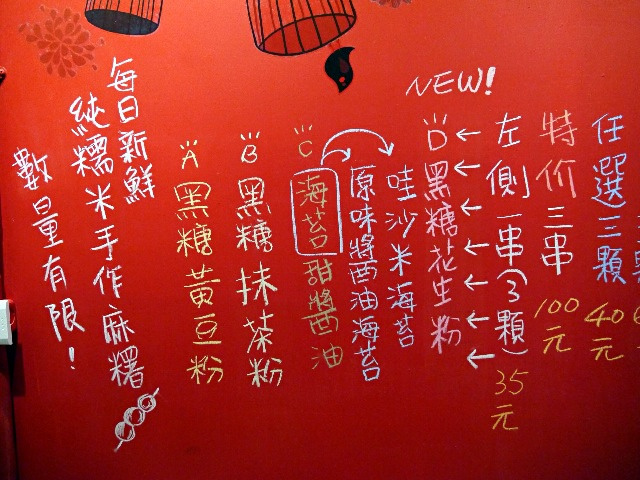 任選三顆 40元
特价三串 100元
左側一串(3顆) 35元
NEW!
D 黑糖花生粉
哇沙米海苔
原味醬油海苔
C 海苔甜醬油
B 黑糖抹茶粉
A 黑糖黃豆粉
每日新鮮
純糯米手作麻糬
數量有限!